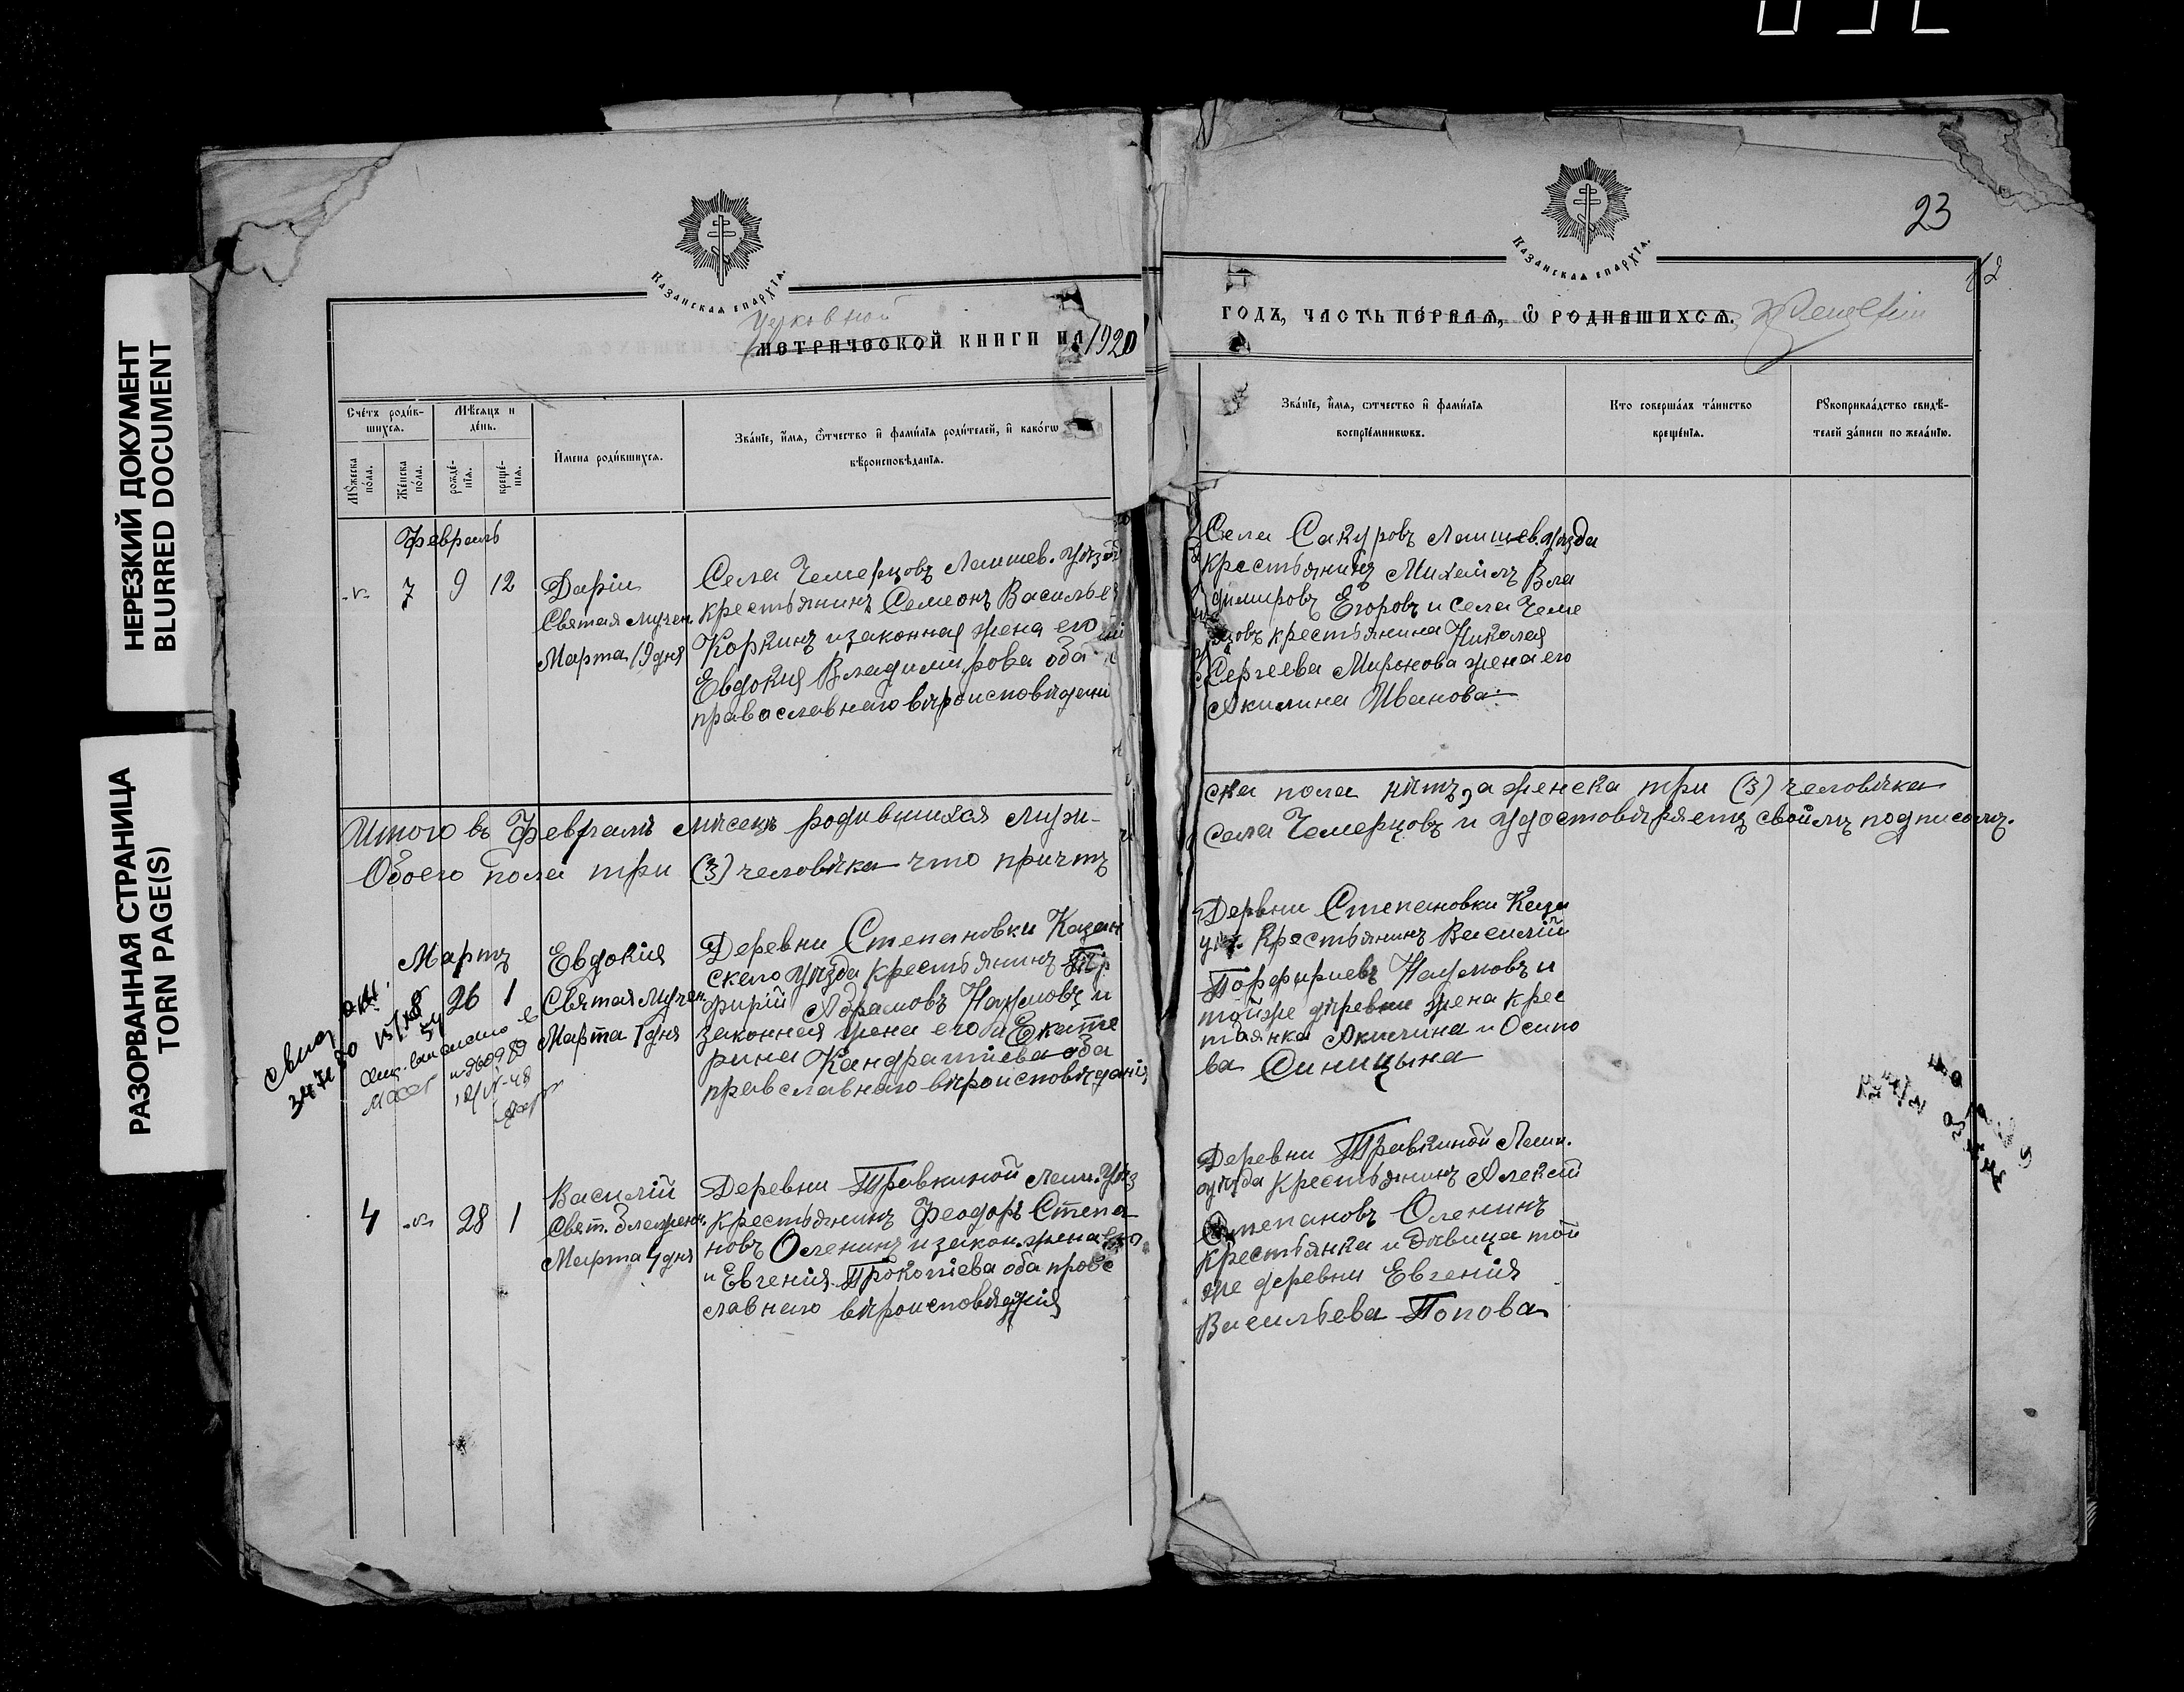 НЕРЕЗКИЙ ДОКУМЕНТ
BLURRED DOCUMENT
РАЗОРВАННАЯ СТРАНИЦА
TORN PAGE(S)
Казанская епархія.
Церковной
метрической книги на 1920
Счетъ родив-
шихся.
Мѣсяцъ и
день.
Мужеска
пола.
Женска
пола.
рожде-
нія.
креще-
нія.
Имена родившихся.
Званіе, имя, отчество и фамилія родителей, и какого
вѣроисповѣданія.
Февраль
7 9 12
Дарія
Святая мучен.
Марта 19 дня
Села Чемерцовъ Лаишев. уѣзда
крестьянинъ Семеонъ Василье
Коркинъ и законная жена его
Евдокия Владимирова оба
православнаго вѣроисповѣдені
Итого въ Февралѣ мѣсецѣ родившихся муж-
Обоего пола три (3) человѣка что причтъ
Мартъ
8 26 1
Евдокія
Святая мучен.
Марта 1 дня
Деревни Степановки Казан
скаго уѣзда крестьянинъ Пор
фирій Абрамовъ Наумовъ и
законная жена его Екате
рина Кандратіева оба
правславнаго вѣроисповѣданія
4 28 1
Василій
Свят. Злещен.
Марта 4 дня
Деревни Травкиной Лаиш. Уѣз
крестьянинъ Феодоръ Степа
новъ Оленинъ и закон. жена его
и Евгенія Прокопіева оба прове
славнаго вѣроисповѣданія
23
Казанская епархія.
годъ, часть первая, о родившихся.
Званіе, имя, отчество и фамилія
воспріемниковъ.
Кто совершалъ таинство
крещенія.
Рукоприкладство свидѣ-
телей записи по желанію.
Села Сакуровъ Лаишев. уѣзда
крестьянинъ Михаилъ Вла
димировъ Егоровъ и села Чеме
цовъ крестьянина Николая
Сергеева Миронова жена его
Акилина Иванова
ска пола нѣтъ, а женска три (3) человѣка
села Чемерцовъ и удостовѣряетъ своимъ подписомъ.
Дервни Степановки Каза
уѣз. крестьянинъ Василій
Порфириевъ Наумовъ и
тойже дѣревни жена крес
тьянка Акилина и Осипо
ва Синицына
Деревни Травкиной Лаиш.
уѣзда крестьянинъ Алексій
Степановъ Оленинъ
крестьянка и Дѣвица той
же деревни Евгенія
Васильева Попова